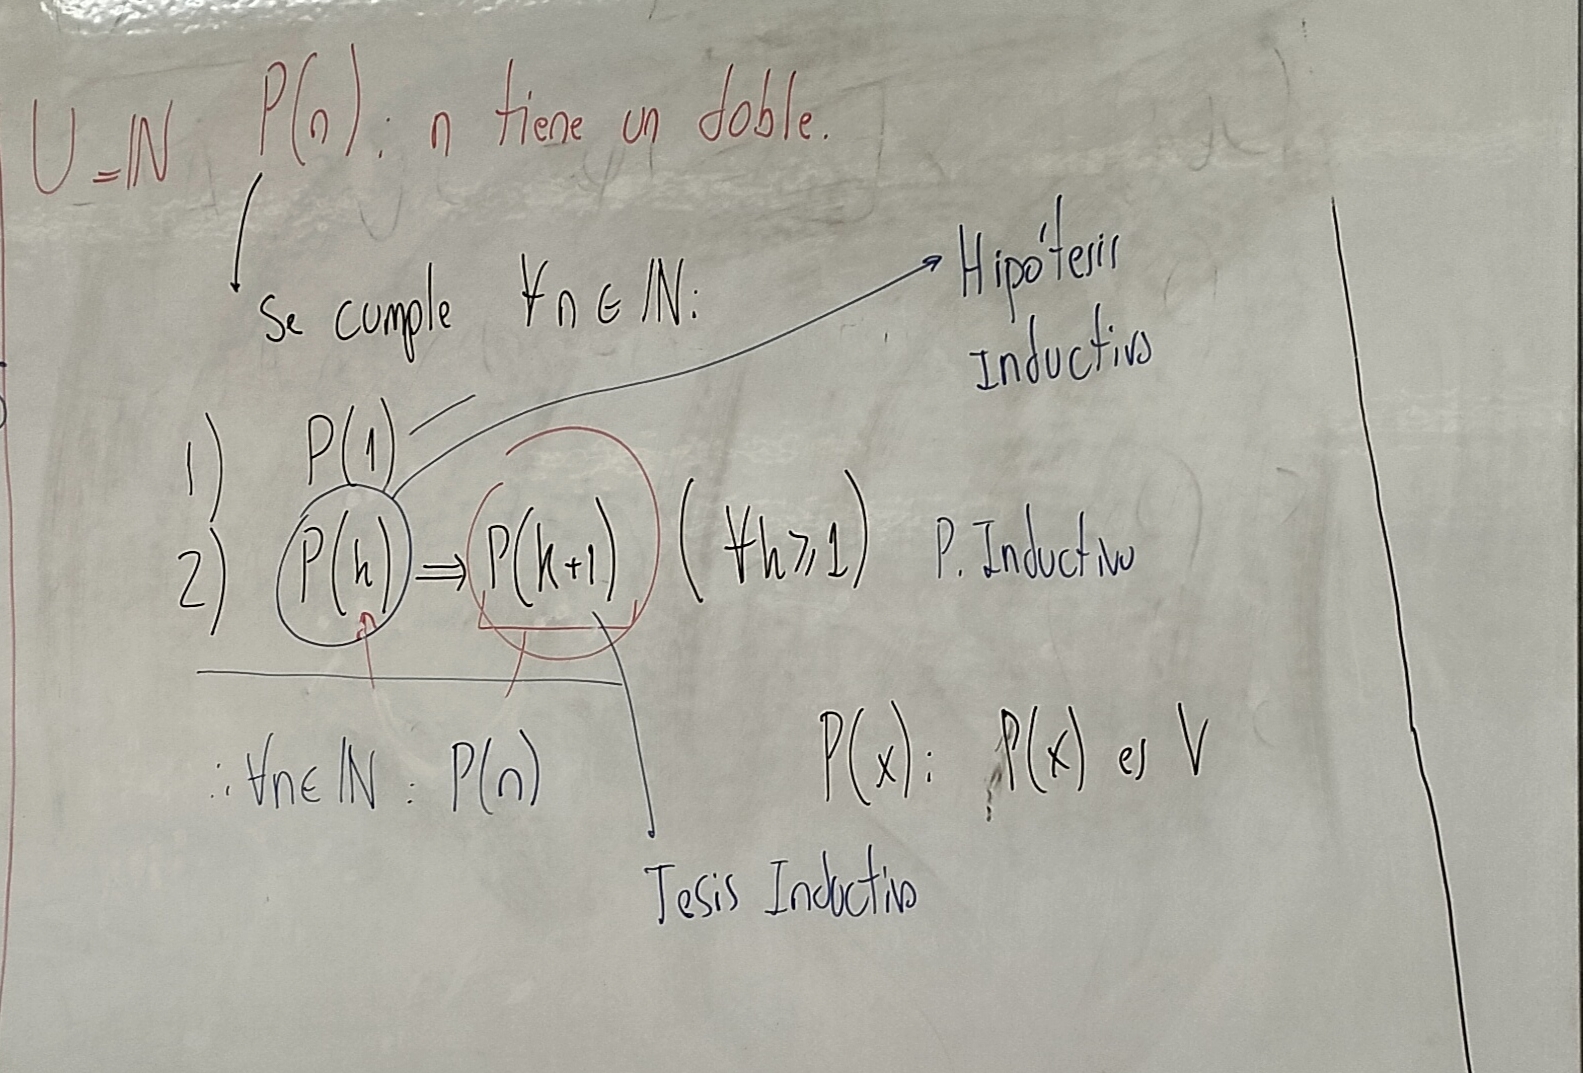 U=ℕ P(n): n tiene un doble.
Se cumple ∀n∈ℕ:
Hipótesis
Inductiva
1) P(1)
2) P(h) ⇒ P(h+1) (∀h⩾1) P. Inductivo
∴ ∀n∈ℕ : P(n)
P(x): P(x) es V
Tesis Inductiva